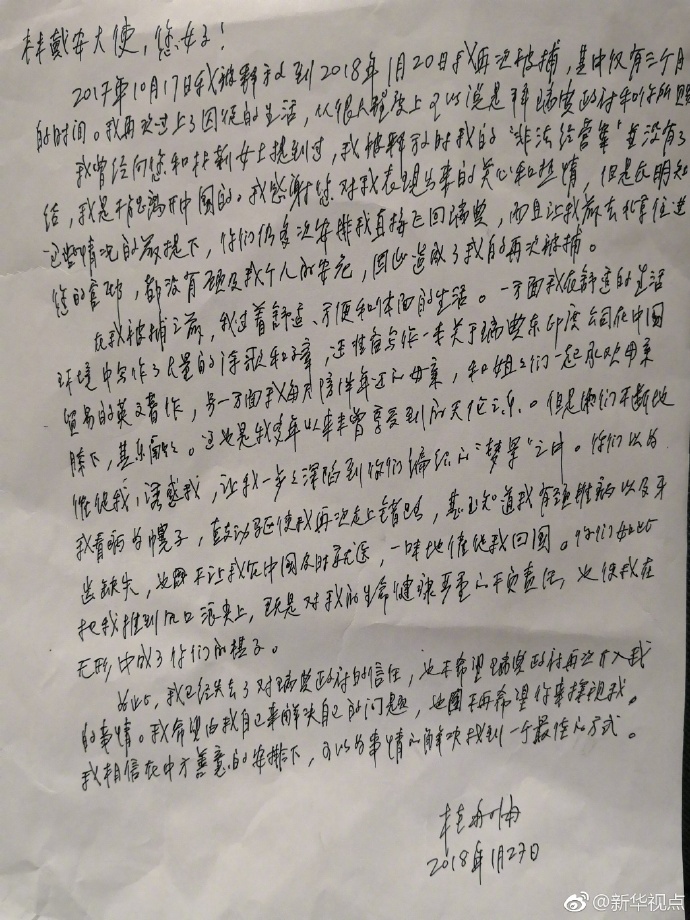 林戴安大使，您好！
2017年10月17日我被释放到2018年1月20日我再次被捕，其中仅有三个月
的时间。我再次过上了囚徒的生活，从很大程度上可以说是拜瑞典政府和你所
我曾经向您和林新女士提到过，我被释放时我的“非法经营案”并没有了
结，我是不能离开中国的。我感谢您对我表现出来的关心和热情，但是在明知
这些情况的前提下，你们仍多次安排我直接飞回瑞典，而且让我前去北京住进
您的官邸，都没有顾及我个人的安危，因此造成了我的再次被捕。
在我被捕之前，我过着舒适、方便和体面的生活。一方面我在舒适的生活
环境中写作了大量的诗歌和文章，还准备写作一本关于瑞典东印度公司在中国
贸易的英文著作，另一方面我每天陪伴年迈的母亲，和姐姐们一起承欢母亲
膝下，其乐融融。这也是我多年以来未曾享受到的天伦之乐。但是你们不断地
催促我，诱惑我，让我一步步深陷到你们编织的“梦景”之中。你们以为
我看病为幌子，鼓动驱使我再次走上错路，甚至知道我有颈椎病以及牙
齿缺失，也不让我在中国及时就医，一味地催促我回国。你们如此
把我推到风口浪尖上，既是对我的生命健康严重的不负责任，也使我在
无形中成了你们的棋子。
为此，我已经失去了对瑞典政府的信任，也不希望瑞典政府再次介入我
的事情。我希望由我自己来解决自己的问题，也不再希望你来探视我。
我相信在中方善意的安排下，可以为事情的解决找到一个最佳的方式。
桂敏海
2018年1月27日
@新华视点